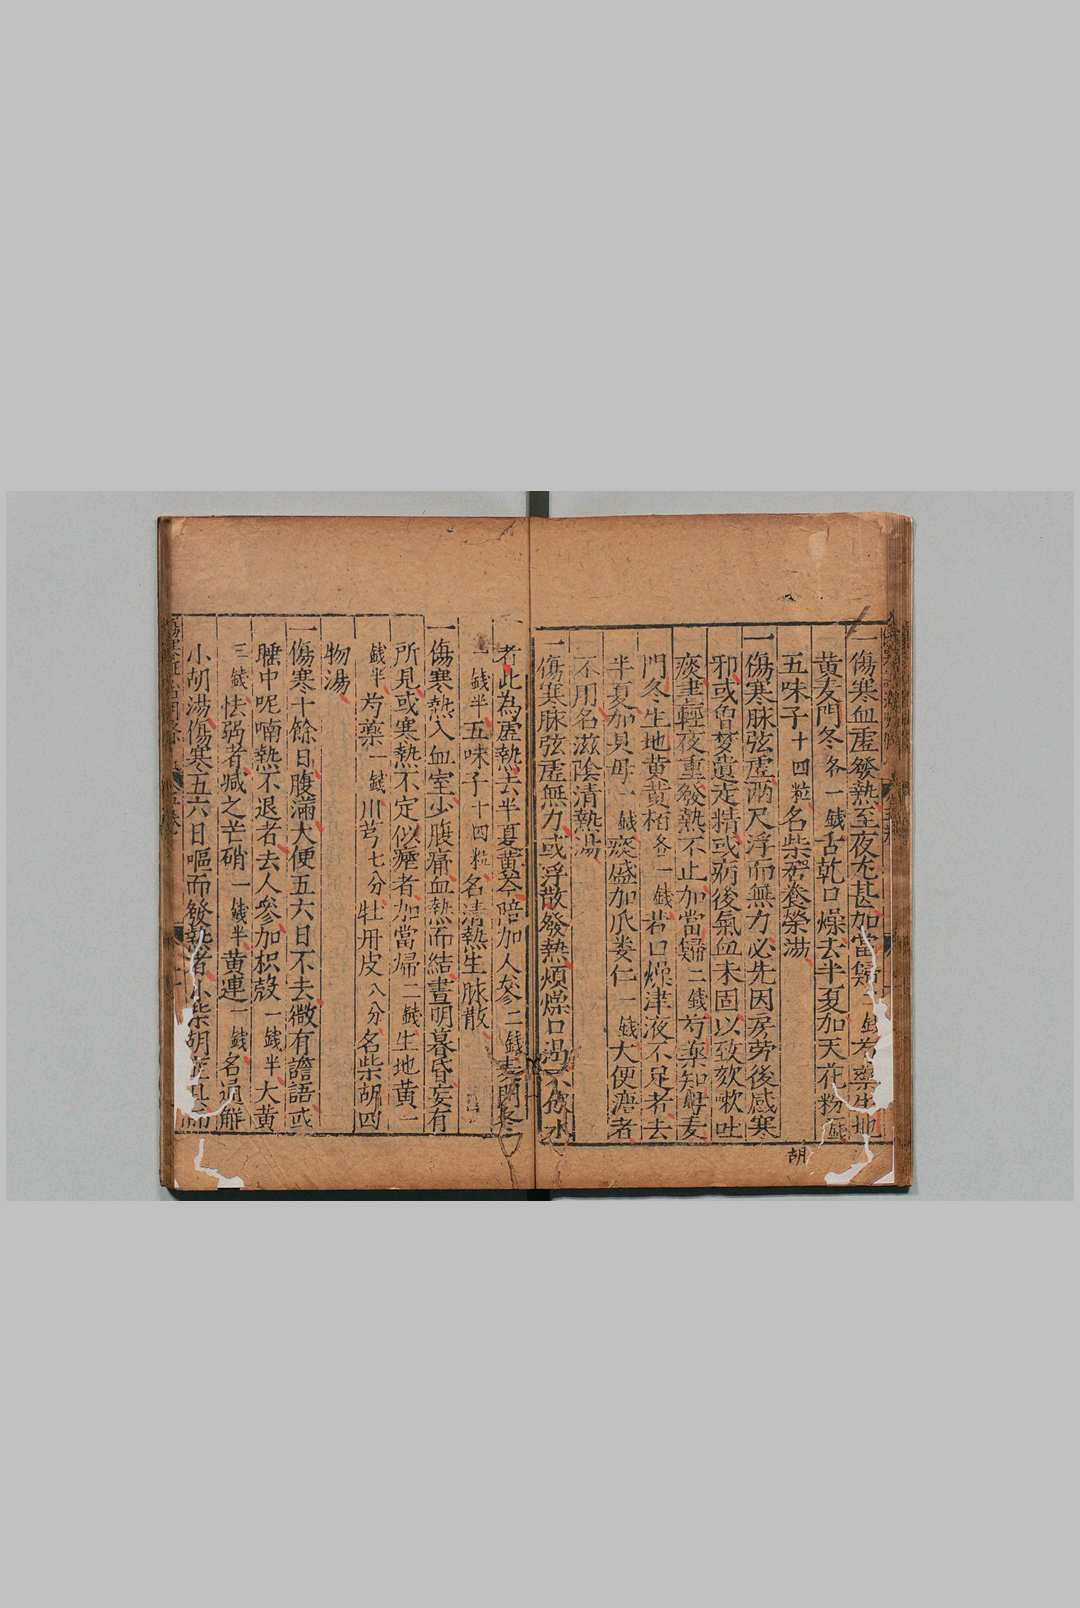 一傷寒血虛發熱至夜尤甚加當歸二錢芍藥生地
黃麥門冬各一錢舌乾口燥去半夏加天花粉錢
五味子十四粒名柴胡養榮湯
一傷寒脉弦虛兩尺浮而無力必先因房勞後感寒
邪或曾夢遺走精或病後氣血未固以致欬嗽吐
痰晝輕夜重發熱不止加當歸二錢芍藥知母麦
門冬生地黃黃栢各一錢若口燥津液不足者去
半夏加貝母一錢痰盛加爪蔞仁一錢大便溏者
不用名滋陰清熱湯
一傷寒脉弦虛無力或浮散發熱煩燥口渴不飲水
者此為虛熱去半夏黃芩陪加人參二錢麦門冬
一錢半五味子十四粒名清熱生脉散
一傷寒熱入血室少腹痛血熱而結晝明暮昏妄有
所見或寒熱不定似瘧者加當歸二錢生地黃一
錢半芍藥一錢川芎七分牡丹皮八分名柴胡四
物湯
一傷寒十餘日腹滿大便五六日不去微有譫語或
睡中呢喃熱不退者去人參加枳殼一錢半大黃
三錢怯弱者減之芒硝一錢半黃連一錢名通解
小胡湯傷寒五六日嘔而發熱者小柴胡
胡